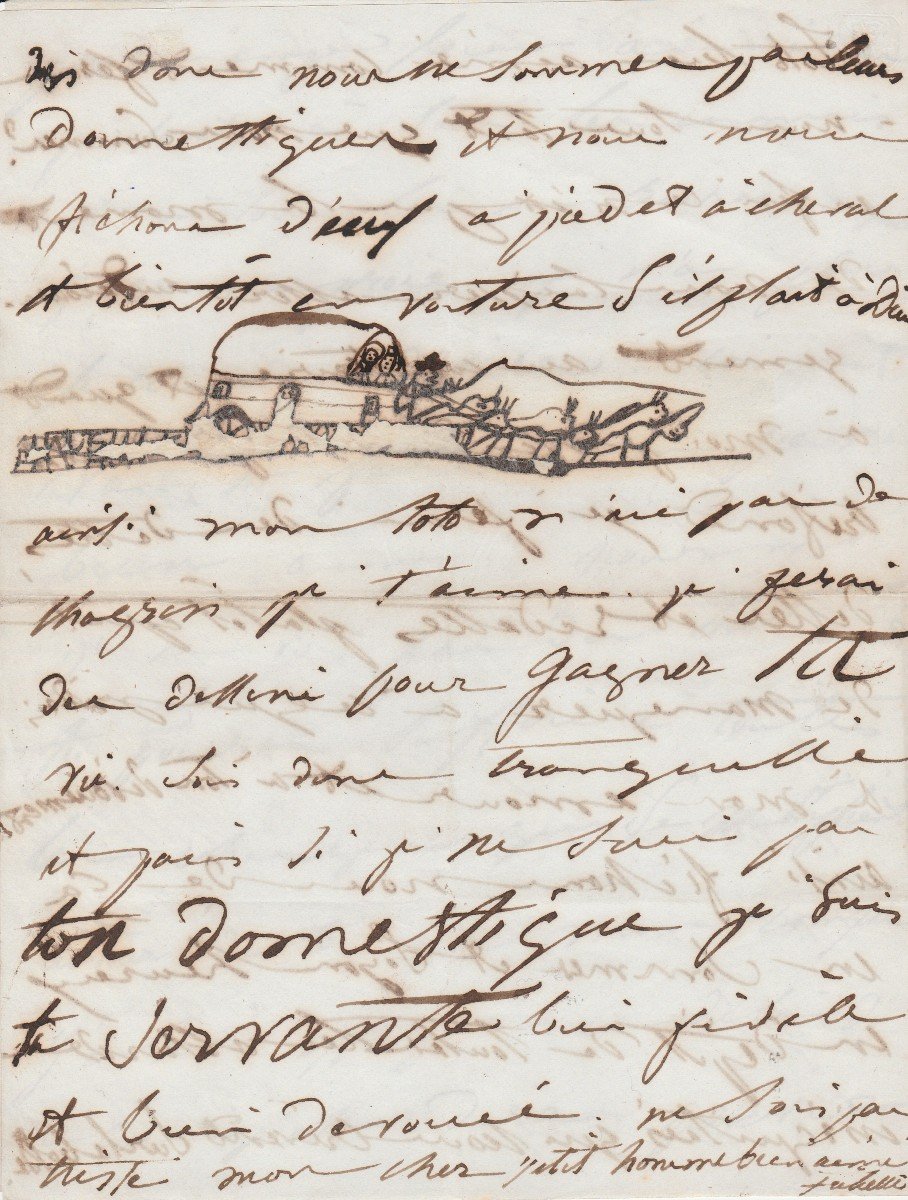 donc nous ne sommes pas leurs
domestiques et nous nous
fichons d'eux à pied et à cheval
et bientôt en voiture s'il plait à Dieu
ainsi mon toto n'aie pas de
chagrin je t'aime. je ferai
des dessins pour gagner ta
vie. Sois donc tranquille
et puis si je ne suis pas
ton domestique je suis
ta servante bien fidèle
et bien dévouée. ne sois pas
triste mon cher petit homme bien aimé